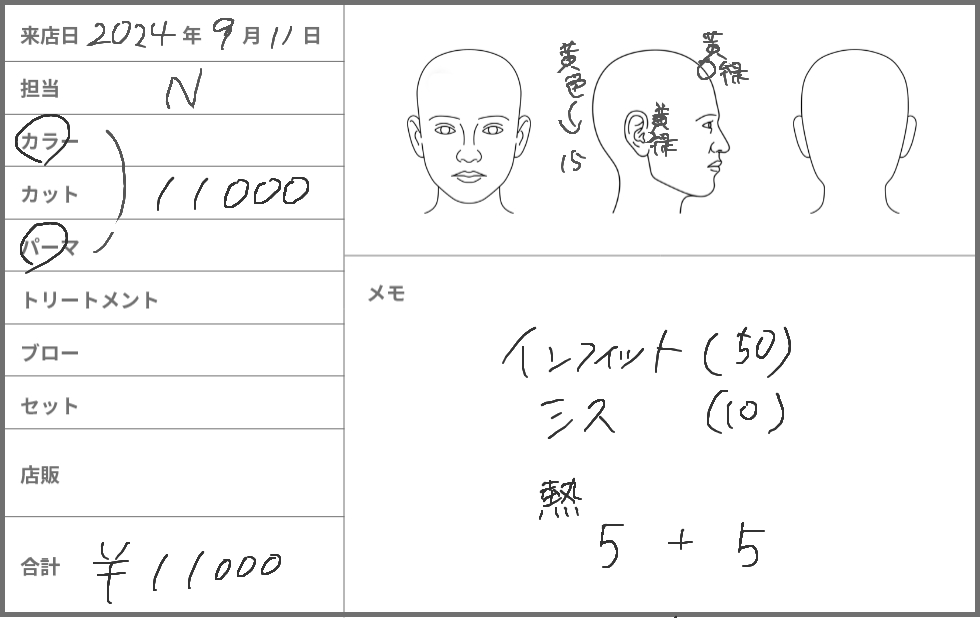 来店日 2024 年 9 月 11 日
担当 N
カラー
カット 11000
パーマ
トリートメント
ブロー
セット
店販
合計 ¥11000
黄色
15
黄緑
黄緑
メモ
インフィット (50)
ミス (10)
熱
5 + 5